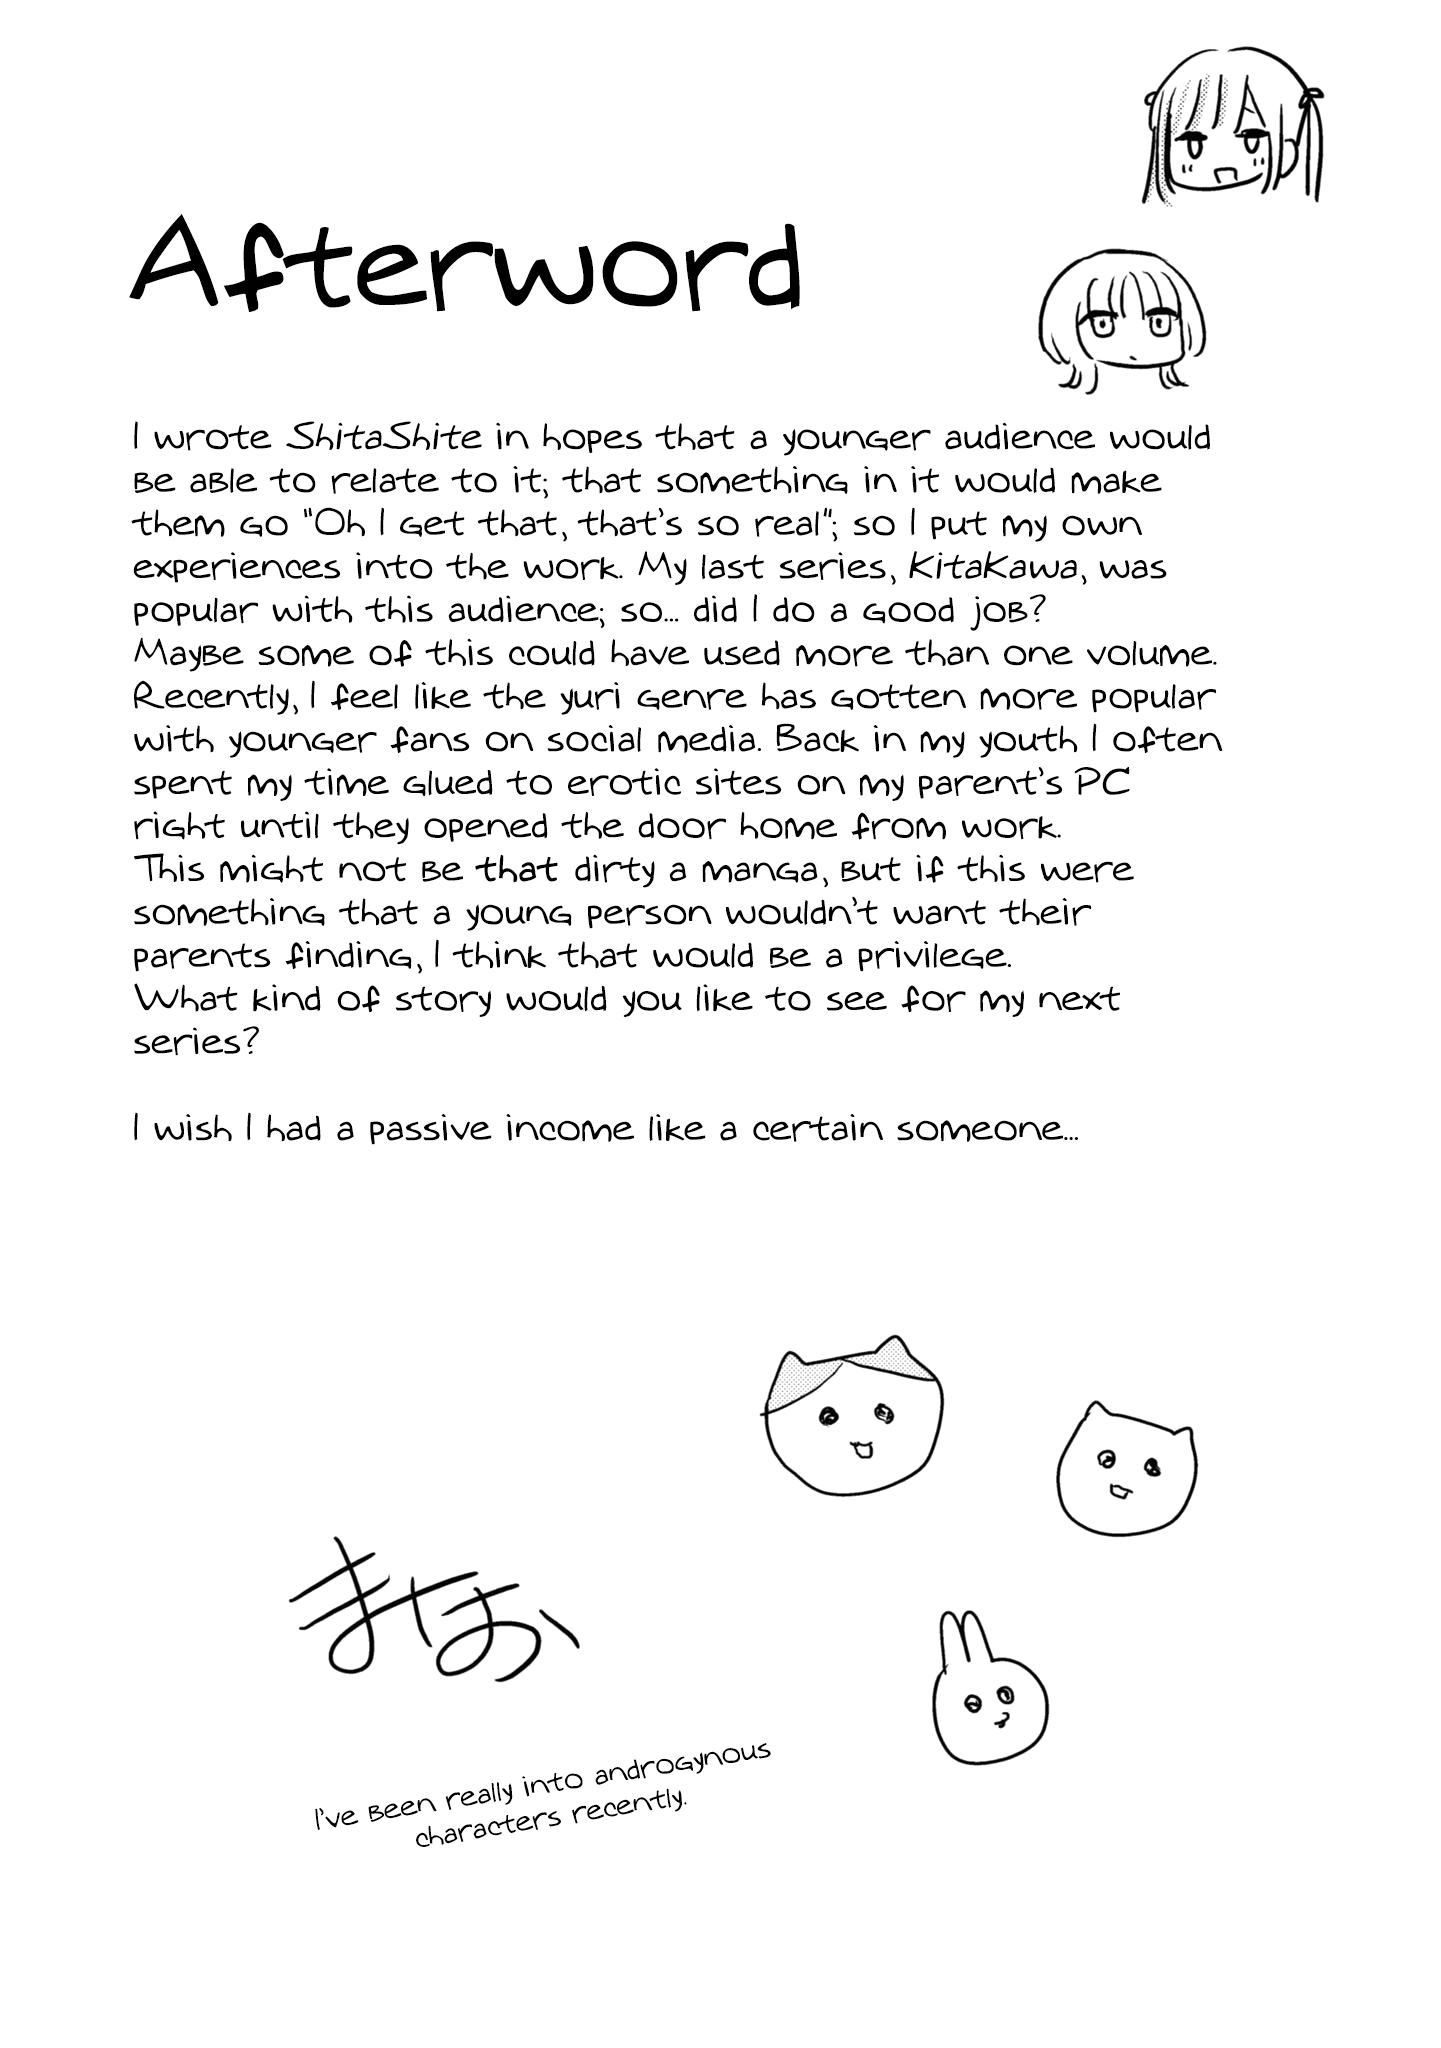 Afterword
I wrote ShitaShite in hopes that a younger audience would
be able to relate to it; that something in it would make
them go "Oh I get that, that's so real"; so I put my own
experiences into the work. My last series, KitaKawa, was
popular with this audience; so... did I do a good job?
Maybe some of this could have used more than one volume.
Recently, I feel like the yuri genre has gotten more popular
with younger fans on social media. Back in my youth I often
spent my time glued to erotic sites on my parent's PC
right until they opened the door home from work.
This might not be that dirty a manga, but if this were
something that a young person wouldn't want their
parents finding, I think that would be a privilege.
What kind of story would you like to see for my next
series?
I wish I had a passive income like a certain someone...
ませお
I've been really into androgynous
characters recently.